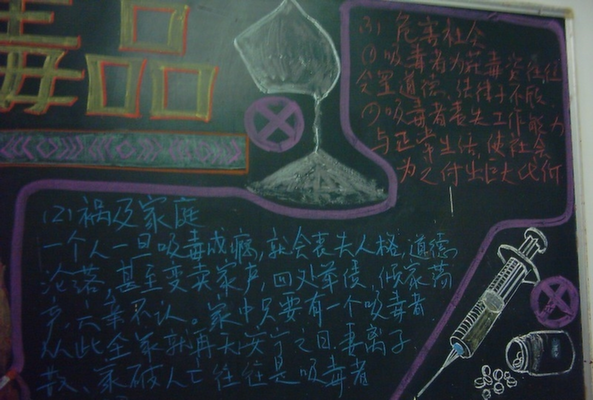 毒品
(3) 危害社会
(1)吸毒者为获毒资往往
会置道德、法律于不顾
(2)吸毒者丧失工作能力
与正常生活,使社会
为之付出巨大代价
(2)祸及家庭
一个人一旦吸毒成瘾,就会丧失人格,道德
沦落,甚至变卖家产,四处举债,倾家荡
产,六亲不认。家中只要有一个吸毒者
从此全家就再无安宁之日,妻离子
散、家破人亡往往是吸毒者